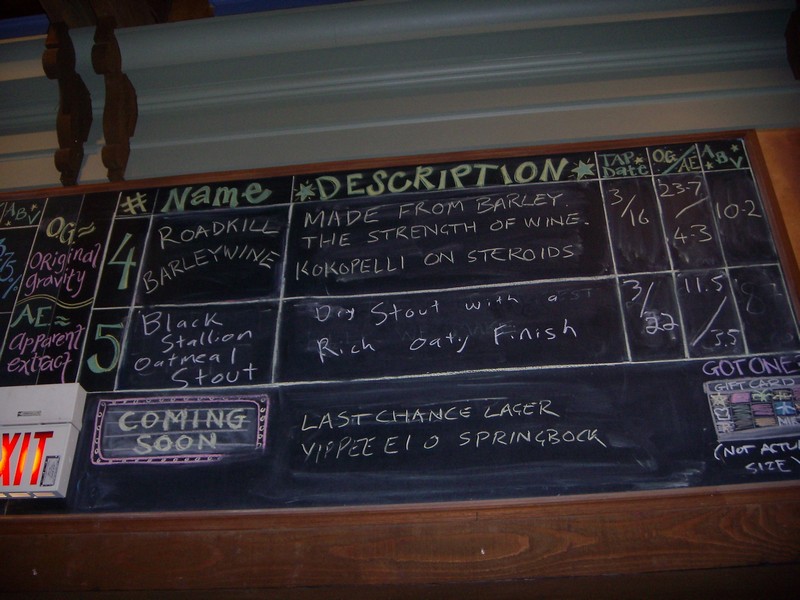 ABV
OG=
ORiginal
gravity
AE=
apparent
extract
# Name DESCRIPTION TAP Date OG/AE ABV
4 ROADKILL
BARLEYWINE
MADE FROM BARLEY.
THE STRENGTH OF WINE.
KOKOPELLI ON STEROIDS
3/16
23.7
4.3
10.2
5 Black
Stallion
Oatmeal
Stout
Dry Stout with a
Rich Oaty Finish
3/22
11.5
/3.5
COMING
SOON
LAST CHANCE LAGER
YIPPEE EI O SPRINGBOCK
GOT ONE
GIFT CARD
(NOT ACTU
SIZE)
EXIT